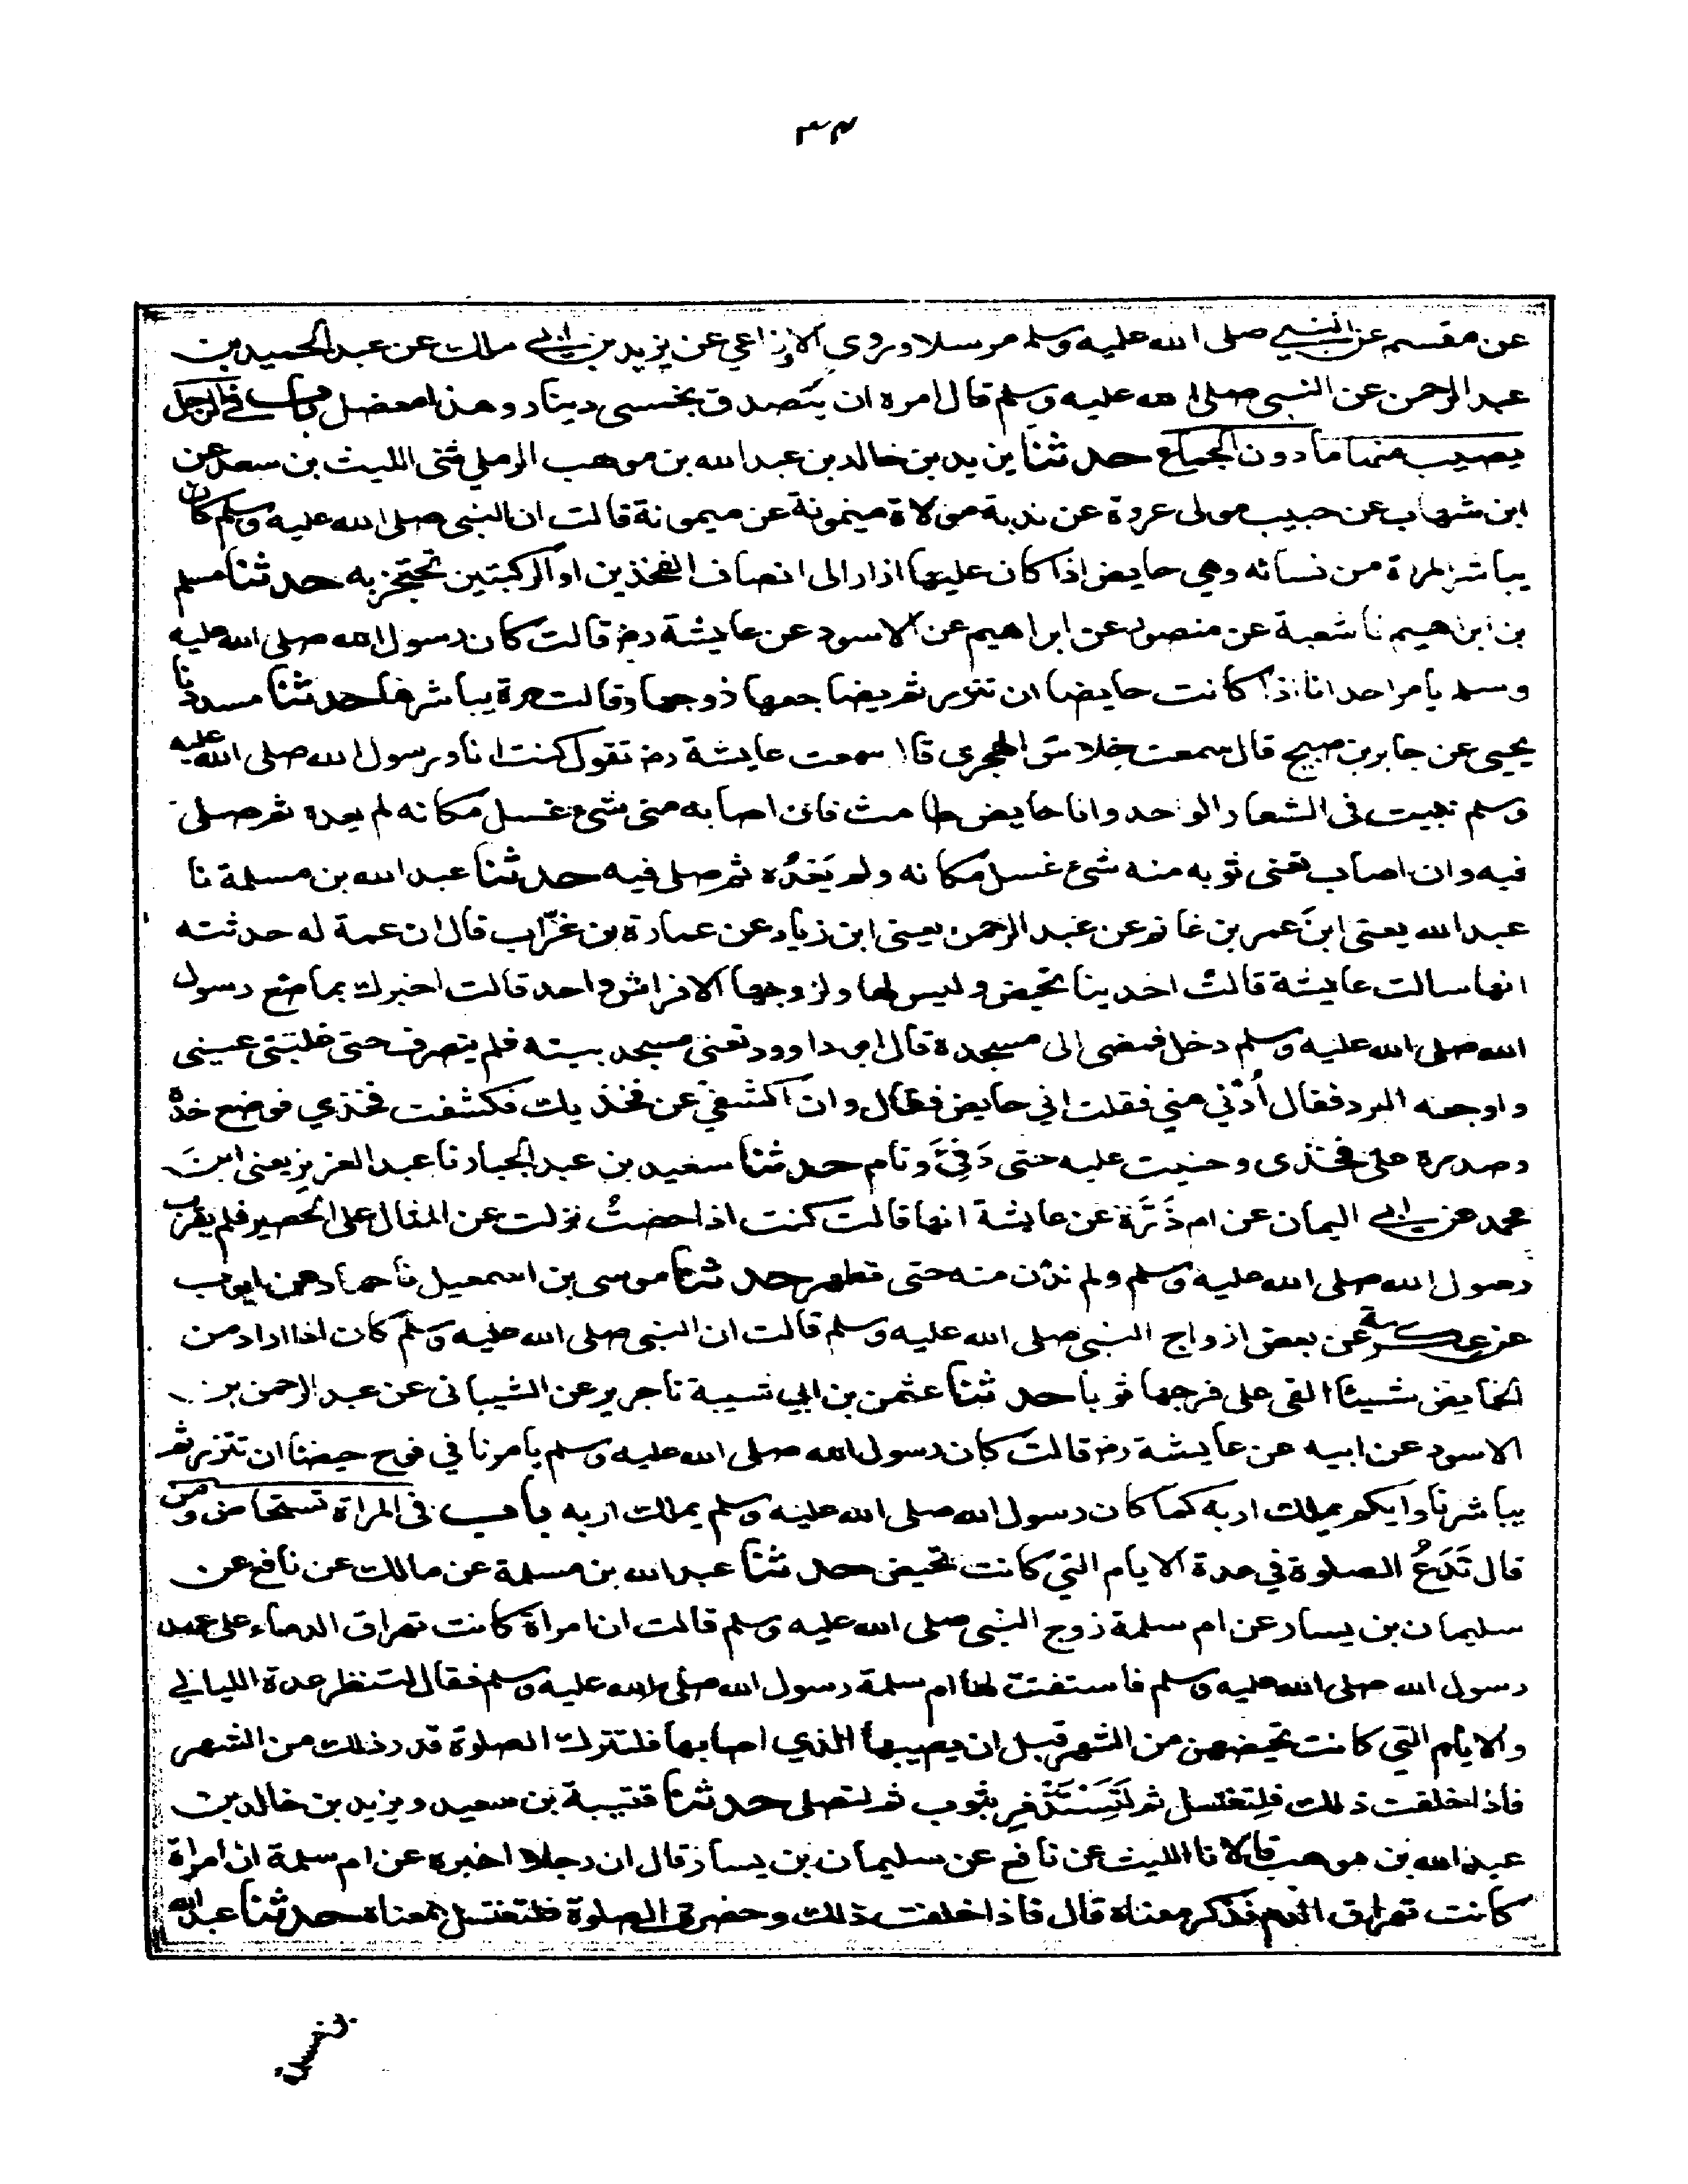 ٣٤
عن مقسم عن النبي صلى الله عليه وسلم مرسلا وروى الاوزاعي عن يزيد بن ابي مالك عن عبد الحميد بن
عبد الرحمن عن النبي صلى الله عليه وسلم قال امره ان يتصدق بخمسى دينار وهذا معضل باب في الرجل
يصيب منها ما دون الجماع حدثنا يزيد بن خالد بن عبد الله بن موهب الرملي ثنى الليث بن سعد عن
ابن شهاب عن حبيب مولى عروة عن ندبة مولاة ميمونة عن ميمونة قالت ان النبي صلى الله عليه وسلم كان
يباشر المراة من نسائه وهي حايض اذا كان عليها ازار الى انصاف الفخذين او الركبتين تحتجز به حدثنا مسلم
بن ابراهيم نا شعبة عن منصور عن ابراهيم عن الاسود عن عايشة رض قالت كان رسول الله صلى الله عليه
وسلم يامر احدانا اذا كانت حايضا ان تتزر ثم يضاجعها زوجها وقالت مرة يباشرها حدثنا مسدد نا
يحيى عن جابر بن صبيح قال سمعت خلاس الهجرى قال سمعت عايشة رض تقول كنت انا ورسول الله صلى الله عليه
وسلم نبيت فى الشعار الواحد وانا حايض طامث فان اصابه منى شئ غسل مكانه لم يعده ثم صلى
فيه وان اصاب تعنى ثوبه منه شئ غسل مكانه ولم يَعْدُه ثم صلى فيه حدثنا عبد الله بن مسلمة نا
عبد الله يعنى ابن عمر بن غانم عن عبد الرحمن يعنى ابن زياد عن عمارة بن غرّاب قال ان عمة له حدثته
انها سالت عايشة قالت احدينا تحيض وليس لها ولزوجها الا فراش واحد قالت اخبرك بما صنع رسول
الله صلى الله عليه وسلم دخل فمضى الى مسجده قال ابو داوود تعنى مسجد بيته فلم ينصرف حتى غلبتنى عينى
واوجعه البرد فقال اُدْنى منى فقلت انى حايض فقال وان اكشفي عن فخذيك فكشفت فخذي فوضع خده
وصدره على فخذى وحنيت عليه حتى دَفِئَ ونام حدثنا سعيد بن عبد الجبار نا عبد العزيز يعنى ابن
محمد عن ابي اليمان عن ام ذَرَّة عن عايشة انها قالت كنت اذا حضتُ نزلت عن المثال على الحصير فلم يقرب
رسول الله صلى الله عليه وسلم ولم ندن منه حتى تطهر حدثنا موسى بن اسمعيل نا حماد عن ايوب
عن عكرمة عن بعض ازواج النبى صلى الله عليه وسلم قالت ان النبى صلى الله عليه وسلم كان اذا اراد من
الحايض شيئا القى على فرجها ثوبا حدثنا عثمن بن ابي شيبة نا جرير عن الشيبانى عن عبد الرحمن بن
الاسود عن ابيه عن عايشة رض قالت كان رسول الله صلى الله عليه وسلم يامرنا في فوح حيضنا ان تتزر ثم
يباشرنا وايكم يملك اربه كما كان رسول الله صلى الله عليه وسلم يملك اربه باب فى المراة تستحاض ومن
قال تَدَعُ الصلوة في عدة الايام التي كانت تحيض حدثنا عبد الله بن مسلمة عن مالك عن نافع عن
سليمان بن يسار عن ام سلمة زوج النبى صلى الله عليه وسلم قالت ان امراة كانت تهراق الدماء على عهد
رسول الله صلى الله عليه وسلم فاستفتت لها ام سلمة رسول الله صلى الله عليه وسلم فقال لتنظر عدة الليالي
والايام التي كانت تحيضهن من الشهر قبل ان يصيبها الذي اصابها فلتترك الصلوة قدر ذلك من الشهر
فاذا خلفت ذلك فلتغتسل ثم لتَسْتَثْفِر بثوب ثم لتصلى حدثنا قتيبة بن سعيد ويزيد بن خالد بن
عبد الله بن موهب قالا نا الليث عن نافع عن سليمان بن يسار قال ان رجلا اخبره عن ام سلمة ان امراة
كانت تهراق الدم فذكر معناه قال فاذا خلفت ذلك وحضرت الصلوة فلتغتسل بمعناه حدثنا عبد الله